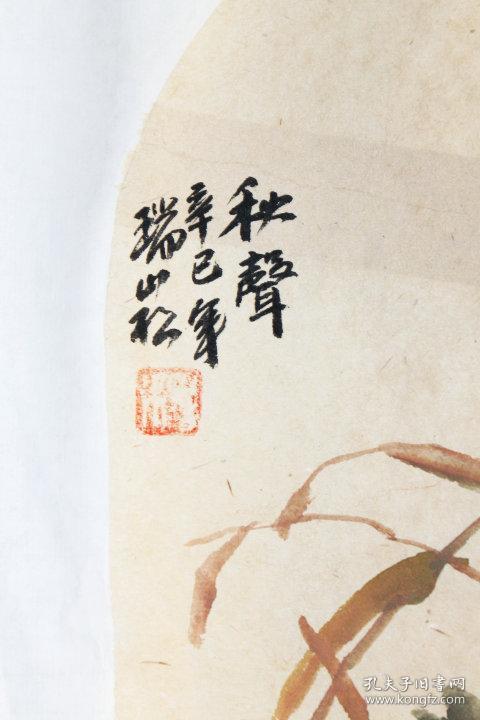 秋聲
辛巳年
瑞山松
孔夫子旧书网
www.kongfz.com